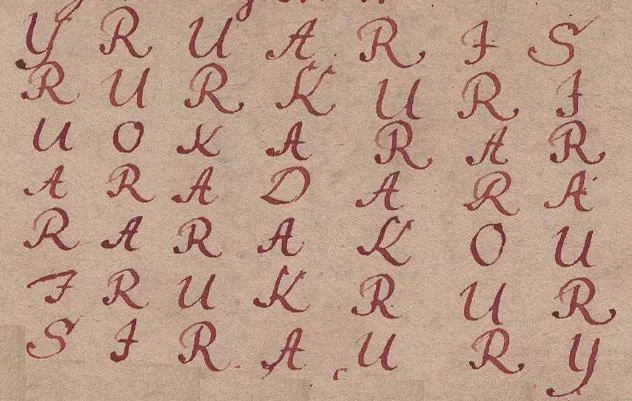 Y R U A R I S
R U R K U R I
U O K A R A R
A R A D A R A
R A R A K O U
I R U K R U R
S I R A U R Y